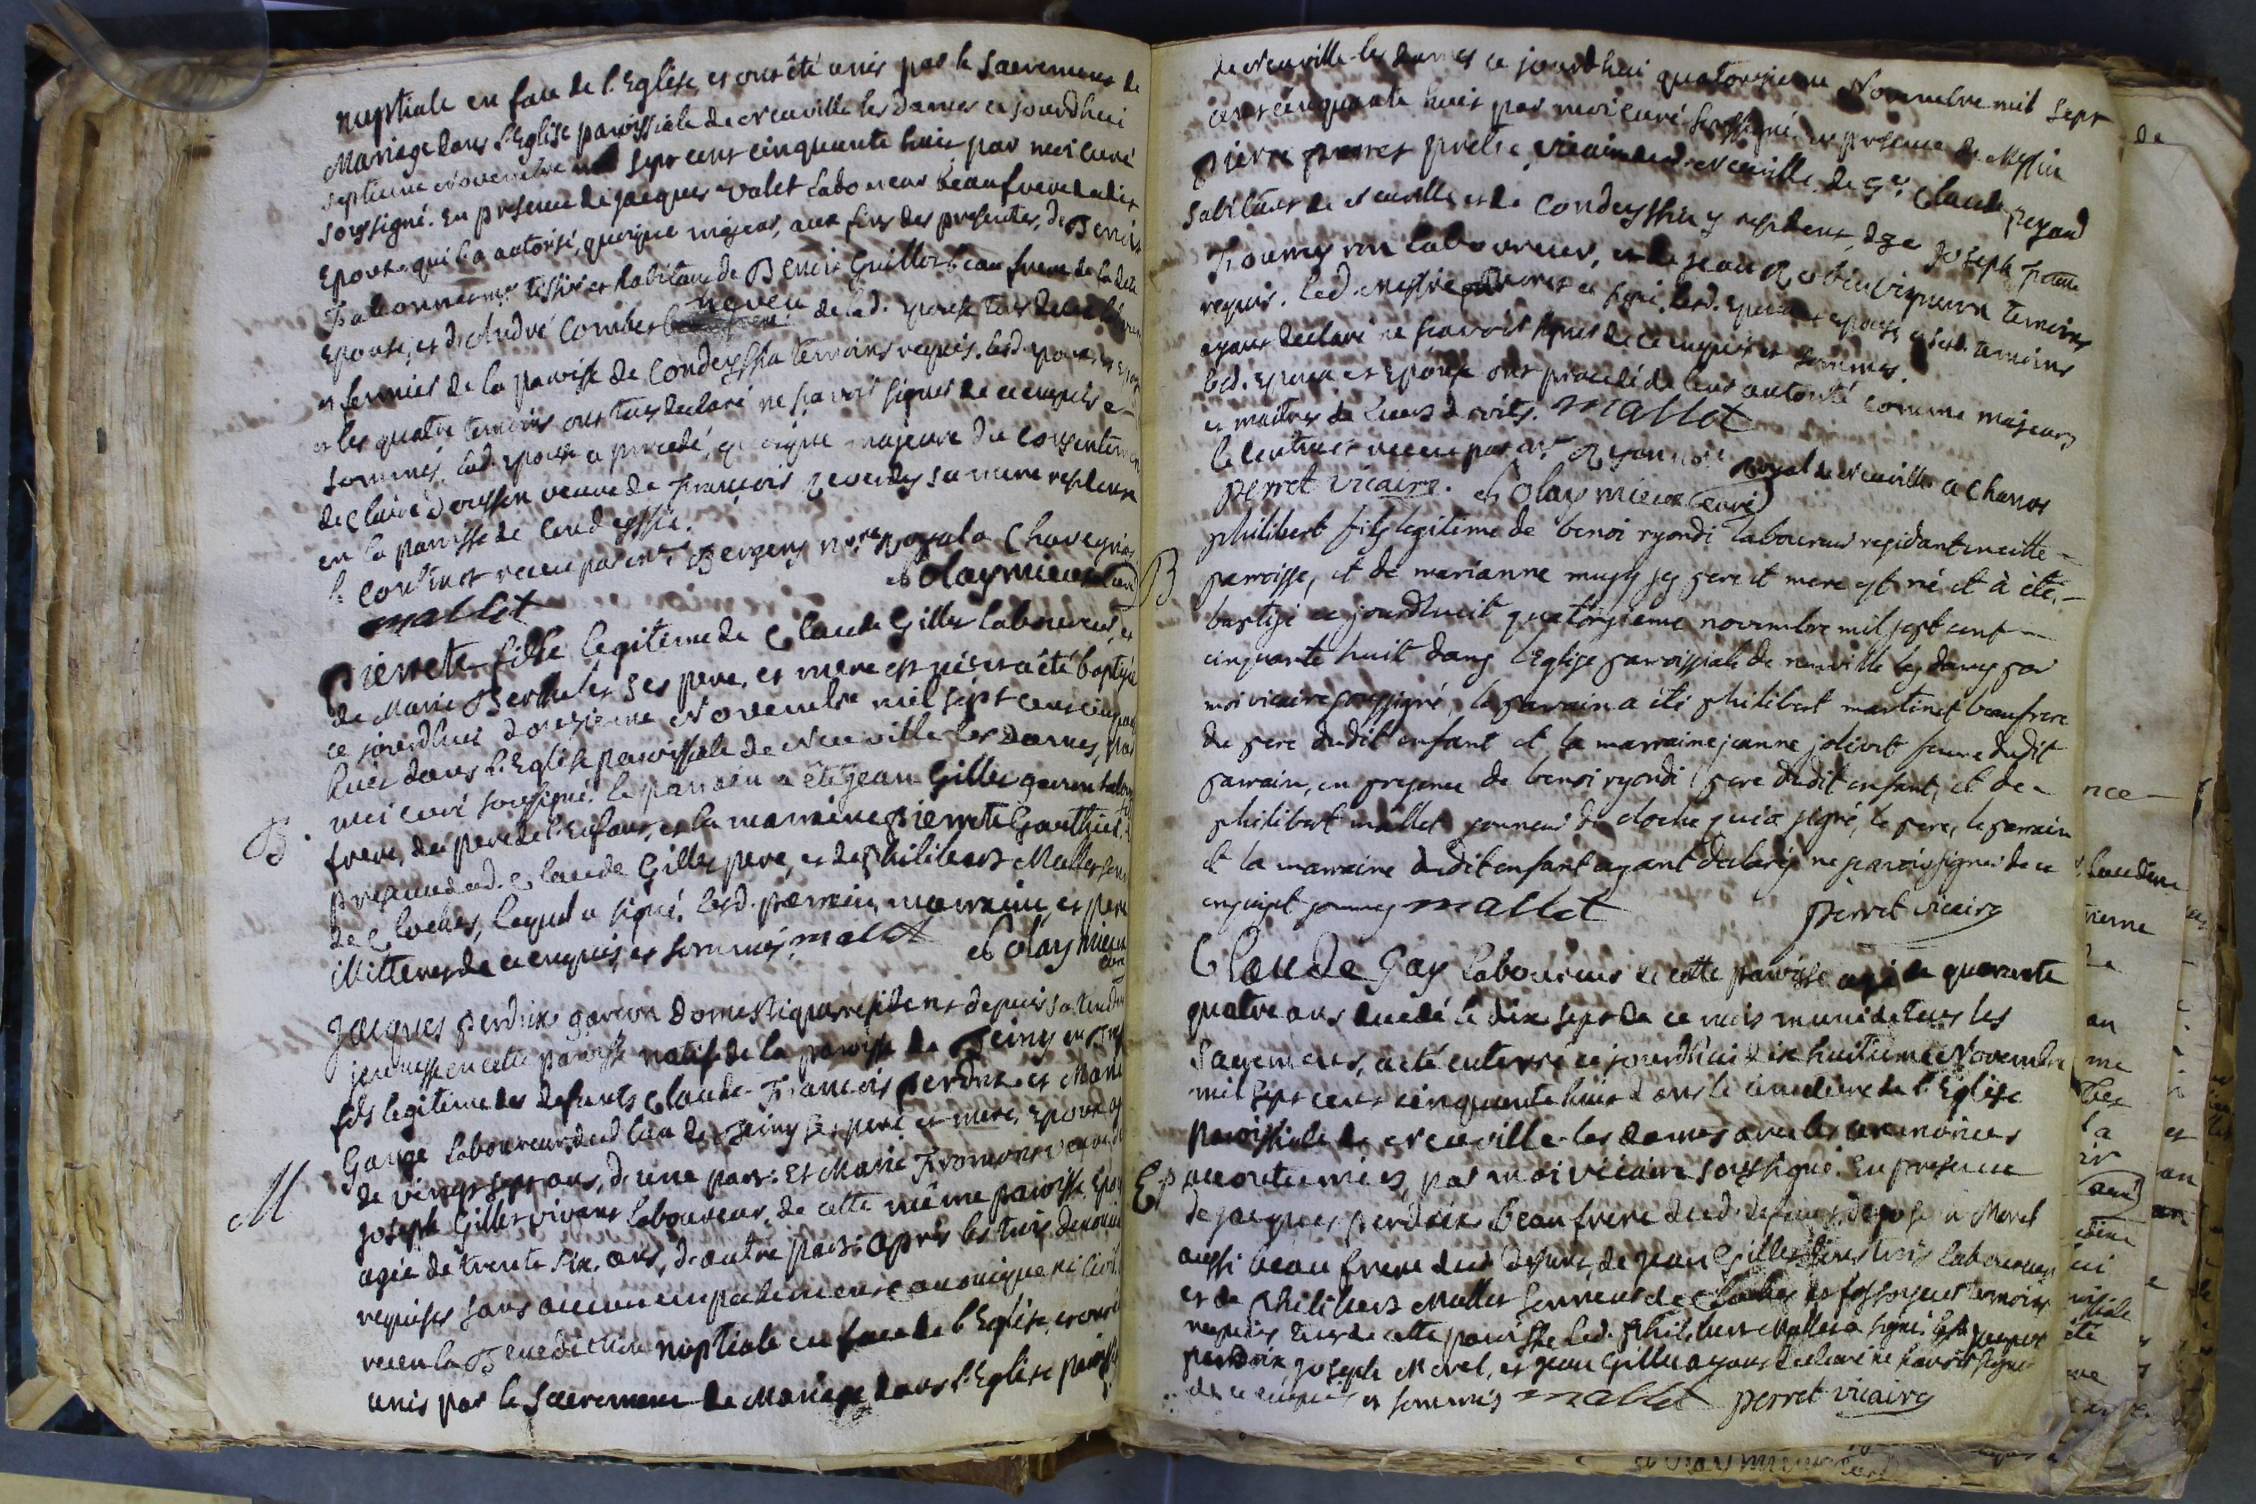 nuptiale en face de l'Eglise et ont été unis par le Sacrement de
Mariage dans l'Eglise paroissiale de Neuville les Dames ce jourdhui
septieme Novembre mil sept cent cinquante huit par moi curé
soussigné. En presence de jacques Valet laboureur beaufrere dudit
Epoux qui l'a autorisé, quoique majeur, aux fins des presentes, de Benoit
tissier et habitant de Benoit Guillot beau frere de ladite
Epouse, et d'André Combet neveu de lad. Epouse tous deux
et fermier de la paroisse de Condeyssia temoins requis. lesd. epoux et Epouse
et les quatre temoins ont tous declaré ne sçavoir signer de ce enquis et
sommés, lad. Epouse a procedé, quoique majeure du consentement
de Claire veuve de François sa mere residente
en la paroisse de Condeyssia.
le contract receu par mre Bergeny nore Royal a Chaveyriat
mallet Colaymieux curé
Pierrette fille legitime de Claude Gillet laboureur, et
de Marie ses pere, et mere est née et a été baptisée
ce jourdhui douzieme Novembre mil sept cent cinquante
huit dans l'Eglise paroissiale de Neuville les Dames, par
B. moi curé soussigné. le parrain a été jean Gillet garçon
frere, du pere de l'Enfant, et la marraine Pierrete Gauthier. en
presence dud. Claude Gillet pere, et de Philibert Mallet sonneur
de Cloches, lequel a signé. lesd. parrain, marraine, et pere
illitterez de ce enquis, et sommés. mallet Colaymieux
curé
Jacques perdrix garçon domestique resident depuis sa tendre
jeunesse en cette paroisse natif de la paroisse de en
fils legitime des defunts Claude-François perdrix et Marie
laboureur dud. lieu de ses pere et mere, epoux agé
M de vingt sept ans, d'une part: Et Marie veuve de
joseph Gillet vivant laboureur, de cette même paroisse Epouse
agée de trente six ans, d'autre part: Après les trois denonciations
requises sans aucun empechement canonique ni civil
receu la Benediction nuptiale en face de l'Eglise, et ont été
unis par le Sacrement de Mariage dans l'Eglise paroissiale
de Neuville-les Dames ce jourdhui quatorzieme Novembre mil sept
cent cinquante huit par moi curé soussigné. en presence de Messire
Pierre perret prêtre, vicaire aud. Neuville, de Sr. Claude
habitant de Neuville et de Condeyssia y resident, de Joseph
laboureur, et de jean vigneron temoins
requis. led. Messire perret a signé. lesd. epoux et epouse, et lesd. temoins
ayant declaré ne sçavoir signer de ce enquis et sommés.
lesd. Epoux et Epouse ont procedé de leur autorité comme majeurs
et maitres de leurs droits. mallet
le contract receu par mre nore Royal de Neuville a Chanos
perret vicaire. Colaymieux curé
B philibert fils legitime de benoi ryondi laboureur residant en cette
parroisse, et de marianne ses pere et mere est né et à eté
baptisé ce jourdhuit quatorzieme novembre mil sept cent
cinquante huit dans l'Eglise parroissiale de neuville les dames par
moi vicaire soussigné, le parrain a été philibert martinet beaufrere
du pere dudit enfant et la marraine jeanne jolivet femme dudit
parrain, en presence de benoi ryondi pere dudit enfant, et de
philibert mallet sonneur de cloche qui a signé, le pere, le parrain
et la marraine dudit enfant ayant declaré ne sçavoir signer de ce
enquist sommés mallet perret vicaire
Claude Gay laboureur de cette paroisse agé de quarante
quatre ans decedé le dix sept de ce mois muni de tous les
Sacremens, a été enterré ce jourdhui dix huitieme Novembre
mil sept cent cinquante huit dans le cimetiere de l'Eglise
paroissiale de Neuville-les Dames avec les ceremonies
Ep accoutumées, par moi vicaire soussigné. En presence
de jacques perdrix beaufrere dud. defunt, de joseph Morel
aussi beau frere dud. defunt, de jean Gillet tous trois laboureurs
et de Philibert Mallet sonneur de cloches et fossoyeur temoins
requis tous de cette paroisse led. Philibert Mallet a signé. lesd. jacques
perdrix, joseph Morel, et jean Gillet ayant declaré ne sçavoir signer
de ce enquis et sommés mallet perret vicaire